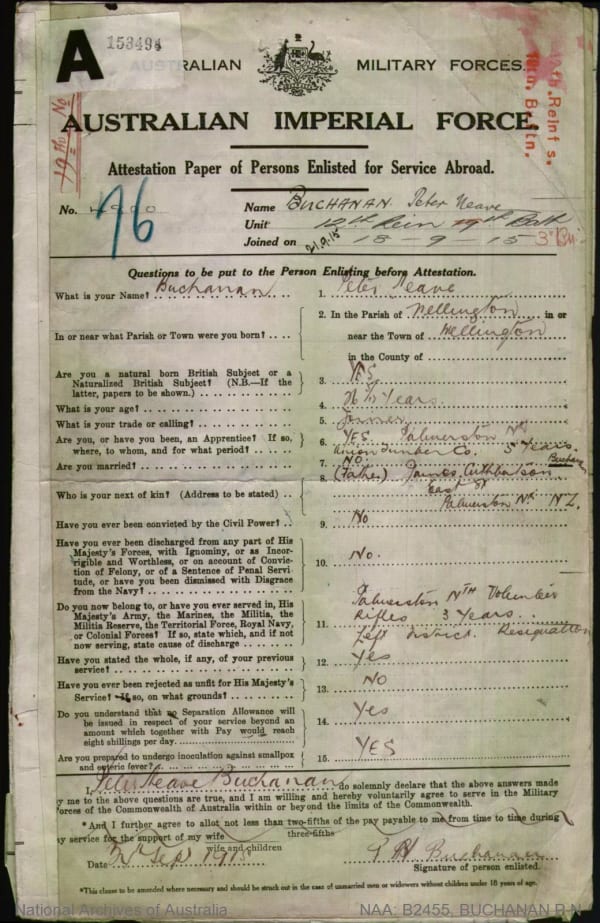 A 153494
AUSTRALIAN MILITARY FORCES.
12th Reinfs.
19th Battn.
AUSTRALIAN IMPERIAL FORCE.
Attestation Paper of Persons Enlisted for Service Abroad.
No. 76
Name BUCHANAN Peter Neave
Unit 12th Rein 19th Batt
Joined on 18-9-15
Questions to be put to the Person Enlisting before Attestation.
What is your Name? Buchanan 1. Peter Neave
In or near what Parish or Town were you born? 2. In the Parish of Wellington in or
near the Town of Wellington
in the County of
Are you a natural born British Subject or a
Naturalized British Subject? (N.B.—If the
latter, papers to be shown.) 3. YES
What is your age? 4. 26 Years
What is your trade or calling? 5.
Are you, or have you been, an Apprentice? If so,
where, to whom, and for what period? 6. YES. Palmerston Nth
Union Timber Co. 5 Years
Are you married? 7. NO.
Who is your next of kin? (Address to be stated) 8. (Father) James Cuthbertson Buchanan
East St
Palmerston Nth NZ.
Have you ever been convicted by the Civil Power? 9. No
Have you ever been discharged from any part of His
Majesty's Forces, with Ignominy, or as Incor-
rigible and Worthless, or on account of Convic-
tion of Felony, or of a Sentence of Penal Servi-
tude, or have you been dismissed with Disgrace
from the Navy? 10. No.
Do you now belong to, or have you ever served in, His
Majesty's Army, the Marines, the Militia, the
Militia Reserve, the Territorial Force, Royal Navy,
or Colonial Forces? If so, state which, and if not
now serving, state cause of discharge 11. Palmerston Nth Volunteer
Rifles 3 Years.
Left District. Resignation
Have you stated the whole, if any, of your previous
service? 12. Yes
Have you ever been rejected as unfit for His Majesty's
Service? If so, on what grounds? 13. NO
Do you understand that no Separation Allowance will
be issued in respect of your service beyond an
amount which together with Pay would reach
eight shillings per day 14. Yes
Are you prepared to undergo inoculation against smallpox
and enteric fever? 15. YES
I, Peter Neave Buchanan do solemnly declare that the above answers made
by me to the above questions are true, and I am willing and hereby voluntarily agree to serve in the Military
Forces of the Commonwealth of Australia within or beyond the limits of the Commonwealth.
*And I further agree to allot not less than two-fifths of the pay payable to me from time to time during
my service for the support of my wife
three-fifths
wife and children
Date Sept 1915 P N Buchanan
Signature of person enlisted.
*This clause to be amended where necessary and should be struck out in the case of unmarried men or widowers without children under 18 years of age.
National Archives of Australia NAA: B2455, BUCHANAN P N